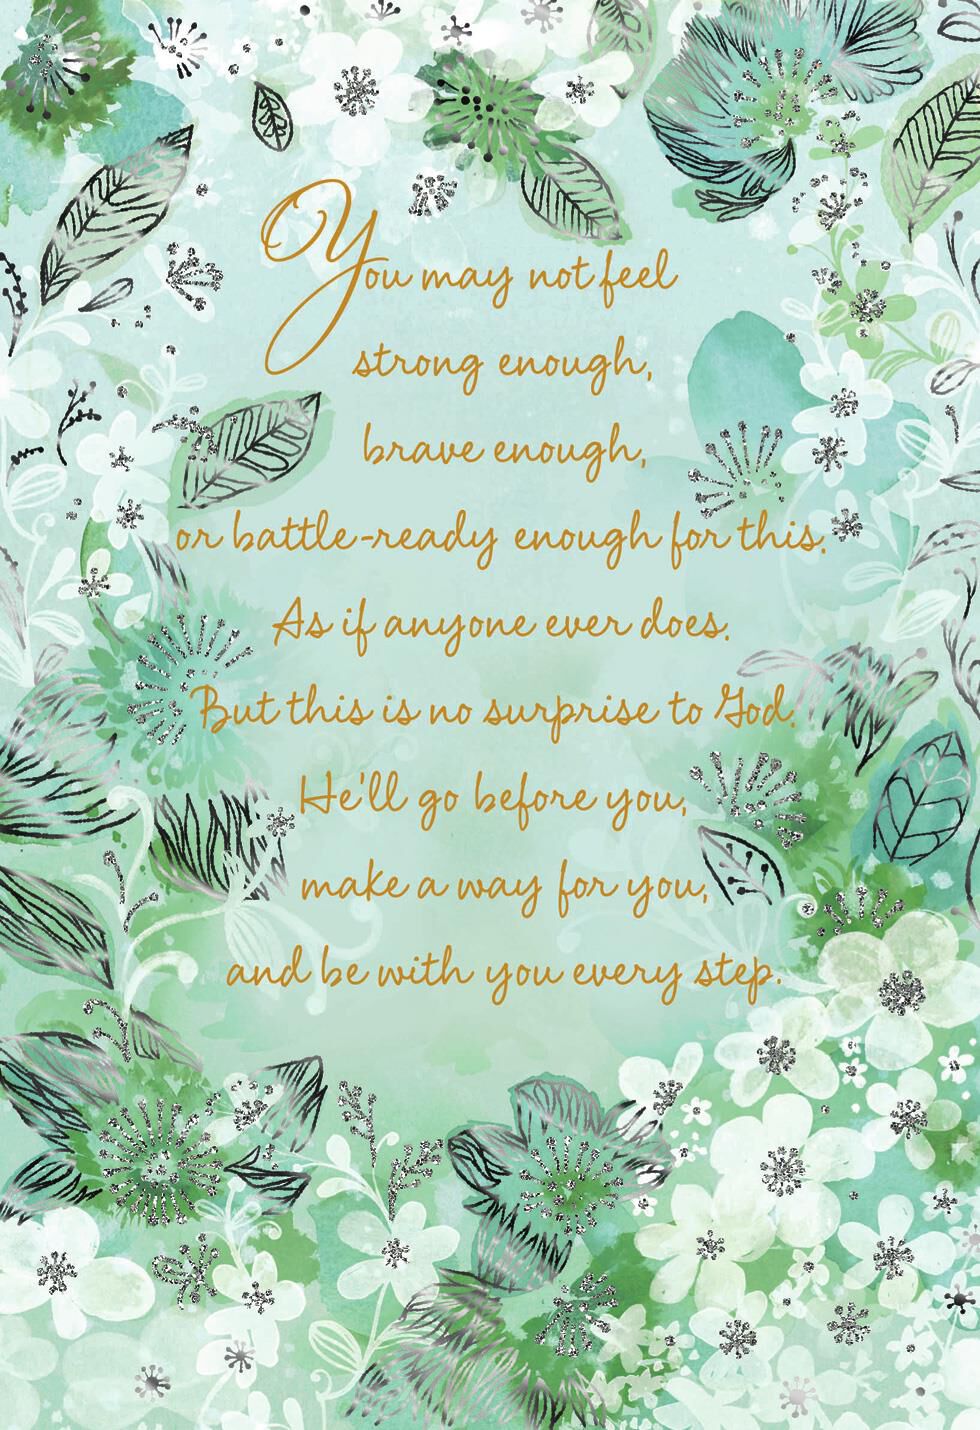 You may not feel
strong enough,
brave enough,
or battle-ready enough for this.
As if anyone ever does.
But this is no surprise to God.
He'll go before you,
make a way for you,
and be with you every step.